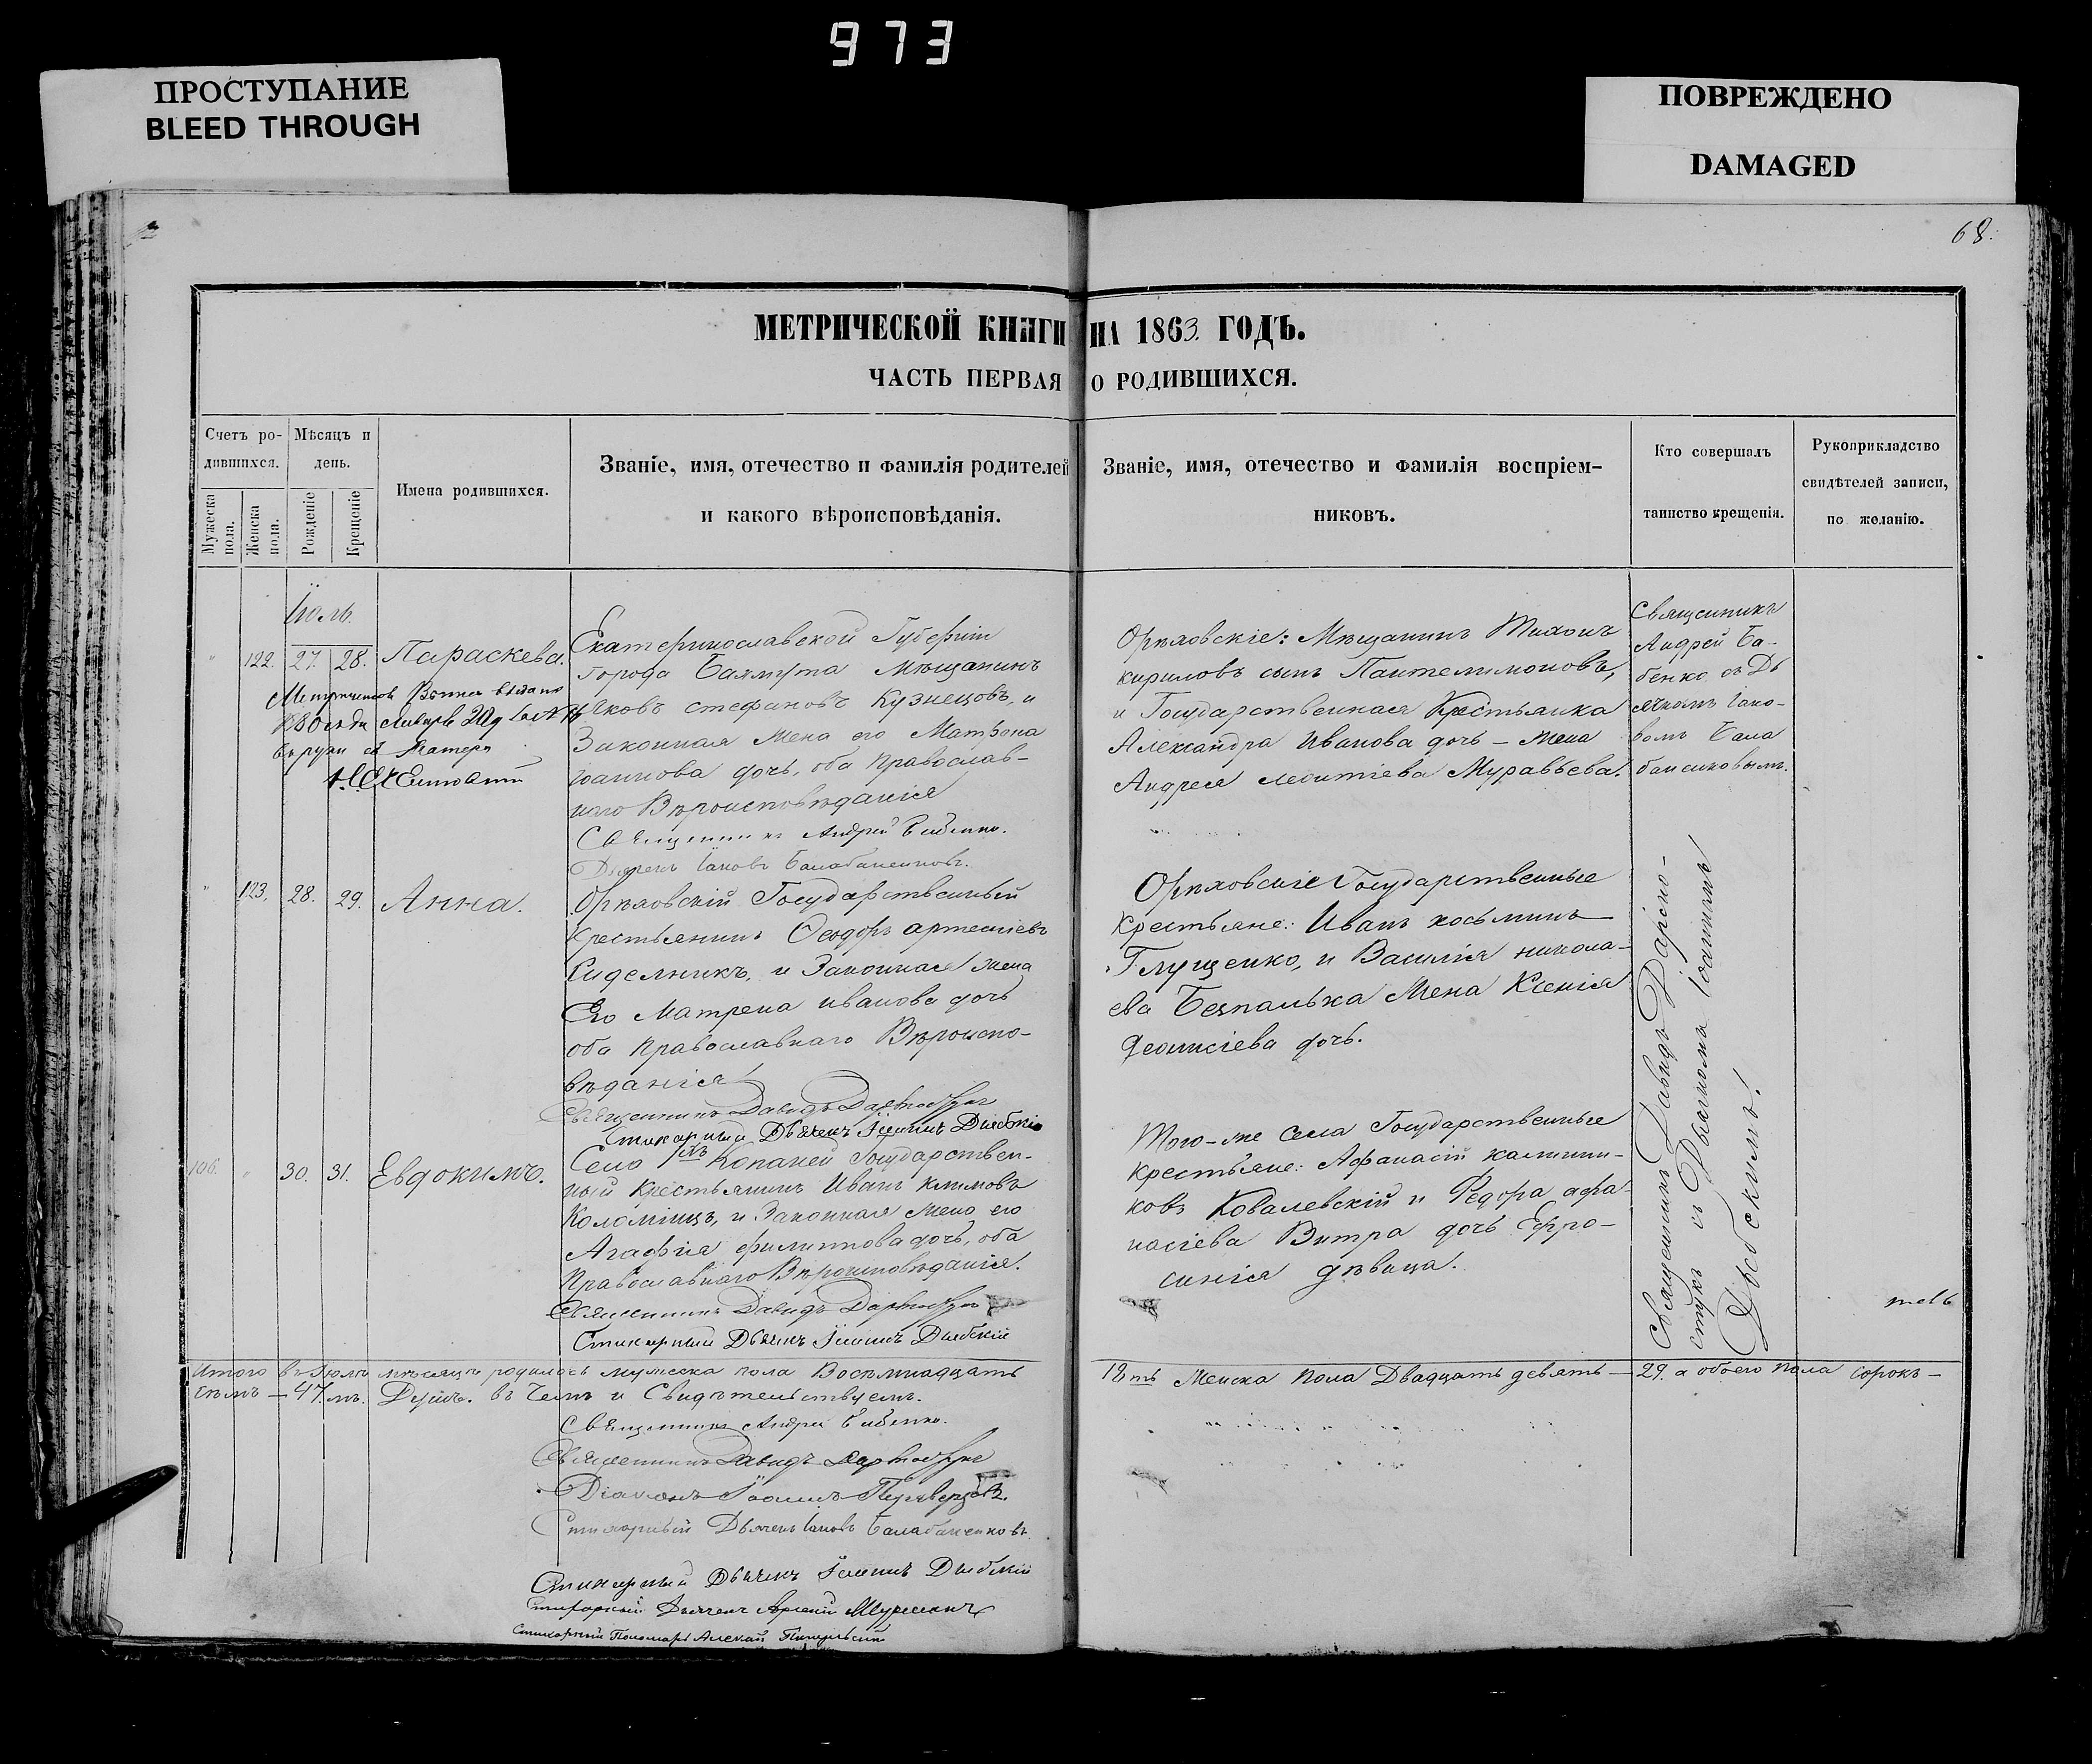 973
ПРОСТУПАНИЕ
BLEED THROUGH
ПОВРЕЖДЕНО
DAMAGED
68.
МЕТРИЧЕСКОЙ КНИГИ НА 1863. ГОДЪ.
ЧАСТЬ ПЕРВАЯ О РОДИВШИХСЯ.
Счетъ ро-
дившихся.
Мужеска пола.
Женска пола.
Мѣсяцъ и
день.
Рожденіе
Крещеніе
Имена родившихся.
Званіе, имя, отечество и фамилія родителей
и какого вѣроисповѣданія.
Званіе, имя, отечество и фамилія воспріем-
никовъ.
Кто совершалъ
таинство крещенія.
Рукоприкладство
свидѣтелей записи,
по желанію.
Іюль.
" 122. 27. 28. Параскева.
Екатеринославской Губерніи
города Бахмута Мѣщанинъ
Яковъ стефановъ Кузнецовъ, и
Законная жена его Матрона
іоаннова дочь, оба Православ-
наго Вѣроисповѣданія
Священникъ Андрей Бабенко.
Дьячекъ Іаковъ Балабаненковъ.
Орѣховскіе: Мѣщанинъ Тихонъ
кириловъ сынъ Пантелимоновъ,
и Государственная Крестьянка
Александра Иванова дочь - жена
Андрея леонтіева Муравьева.
Священникъ
Андрей Ба-
бенко съ Дь
ячкомъ Іако-
вомъ Бала
баненковымъ.
" 123. 28. 29. Анна.
Орѣховскій Государственный
Крестьянинъ Ѳеодоръ артеміевъ
Сидельникъ, и Законная жена
Его Матрена иванова дочь
оба Православнаго Вѣроиспо-
вѣданія
Священникъ Давидъ
Стихарный Дьячекъ Іоаннъ Дзюбскій
Орѣховскіе Государственные
Крестьяне: Иванъ косьминъ
Глущенко, и Василія никола-
ева Безпалька жена Ксенія
деонисіева дочь.
106. " 30. 31. Евдокимъ.
Село Копаней Государствен-
ный Крестьянинъ Иванъ климовъ
Коломіицъ, и Законная жена его
Агафія филиппова дочь, оба
Православнаго Вѣроисповѣданія.
Священникъ Давидъ
Стихарный Дьячекъ Іоаннъ Дзюбскій
Того-же Села Государственные
крестьяне: Афанасій калини-
ковъ Ковалевскій и Федора афа-
насіева Витра дочь Ефро-
синія дѣвица.
Священникъ Давидъ
съ Дьячкомъ Іоанномъ
Дзюбскимъ!
Итого въ Іюлѣ мѣсяцѣ родилось мужеска пола Восемнадцать 18ть Женска пола Двадцать девять - 29. а обоего пола сорокъ -
семь - 47. мъ. Душъ. въ Чемъ и Свидѣтельствуемъ.
Священникъ Андрей Бабенко.
Священникъ Давидъ
Діаконъ Іоаннъ
Стихарный Дьячекъ Іаковъ Балабаненковъ
Стихарный Дьячекъ Іоаннъ Дзюбскій
Стихарный Дьячекъ
Стихарный Пономарь Алексѣй